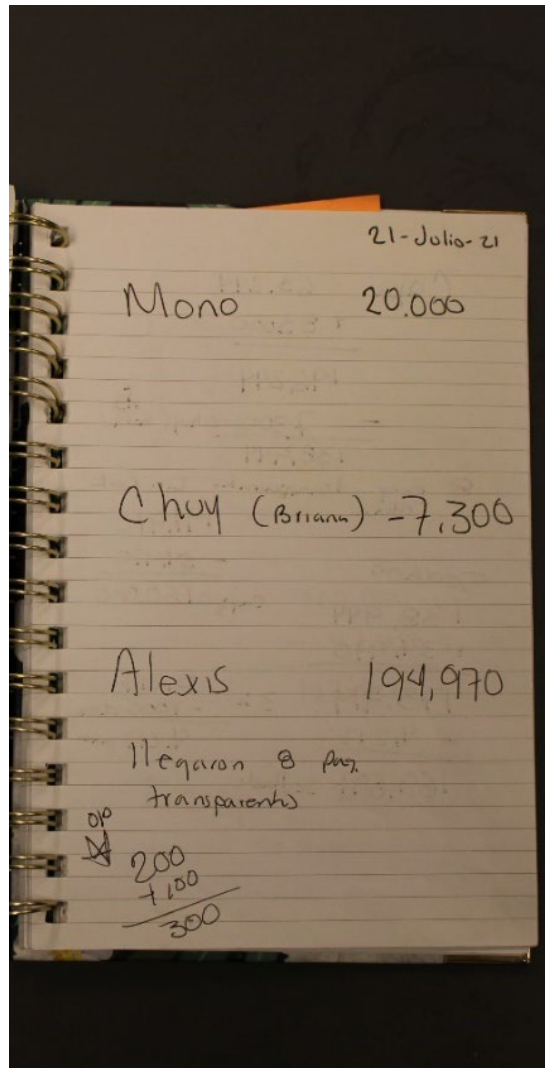 21-Julio-21
Mono 20.000
Chuy (Briana) -7,300
Alexis 194,970
llegaron 8 paq.
transparentes
ojo
200
+100
300